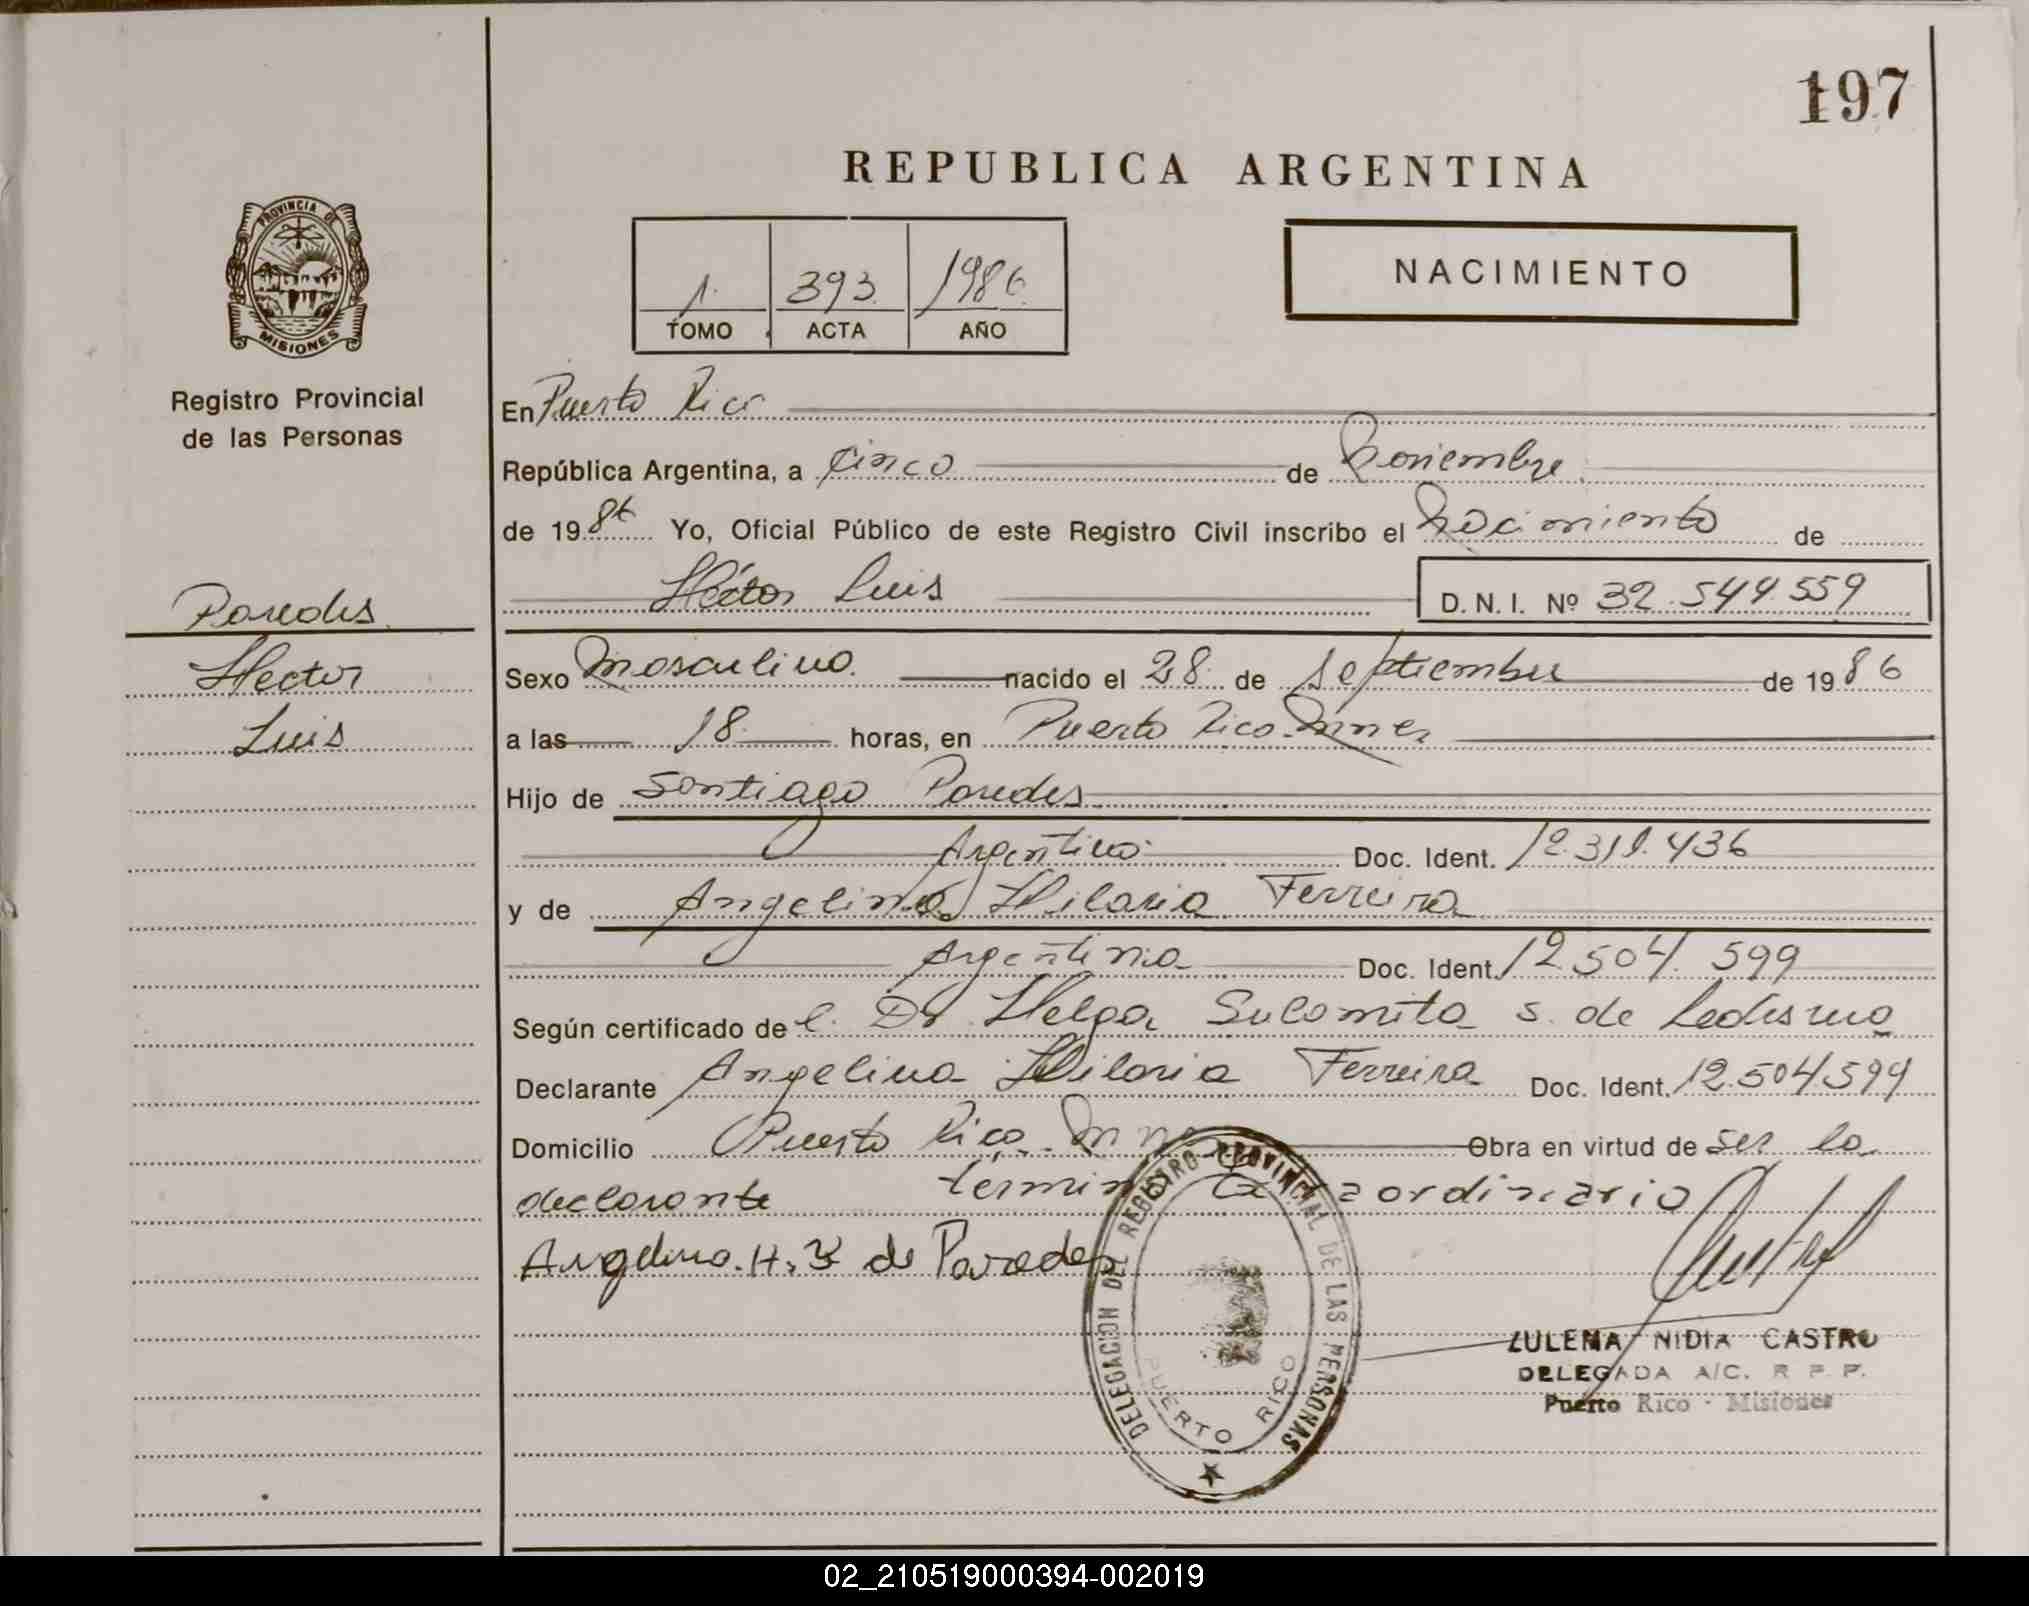 197
REPUBLICA ARGENTINA
PROVINCIA DE
MISIONES
Registro Provincial
de las Personas
1. 393. 1986.
TOMO ACTA AÑO
NACIMIENTO
En Puerto Rico
República Argentina, a cinco de Noviembre.
de 1986 Yo, Oficial Público de este Registro Civil inscribo el Nacimiento de
Héctor Luis
D. N. I. Nº 32.544559
Paredes
Hector
Luis
Sexo Masculino. nacido el 28. de Septiembre de 1986
a las 18. horas, en Puerto Rico. Mnes
Hijo de Santiago Paredes
Argentino. Doc. Ident. 12.311.436
y de Angelina Hilaria Ferreira
Argentina Doc. Ident. 12 504 599
Según certificado de l. Dr Helga S. de Ledesma
Declarante Angelina Hilaria Ferreira Doc. Ident. 12.504599
Domicilio Puerto Rico. Mnes Obra en virtud de ser la
declarante término Extraordinario
Angelina. H. F de Paredes
DELEGACION DEL REGISTRO PROVINCIAL DE LAS PERSONAS
PUERTO RICO
ZULEMA NIDIA CASTRO
DELEGADA A/C. R P P.
Puerto Rico - Misiones
02_210519000394-002019